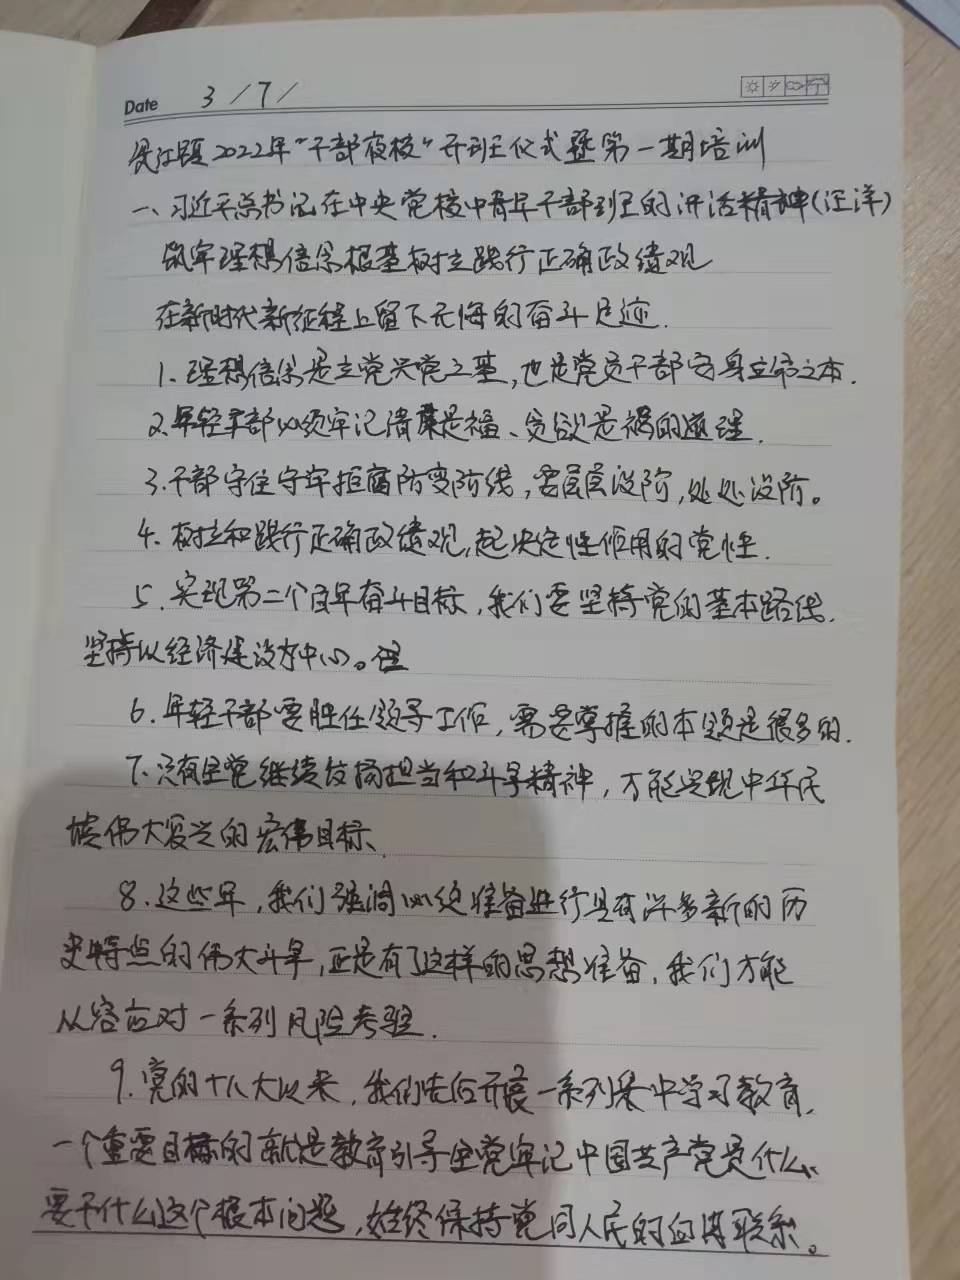 Date 3/7/
丹江镇2022年“干部夜校”开班仪式暨第一期培训
一、习近平总书记在中央党校中青年干部班的讲话精神(汪洋)
筑牢理想信念根基树立践行正确政绩观
在新时代新征程上留下无悔的奋斗足迹.
1、理想信念是立党兴党之基,也是党员干部安身立命之本.
2、年轻干部必须牢记清廉是福、贪欲是祸的道理.
3.干部守住守牢拒腐防变防线,要层层设防,处处设防。
4、树立和践行正确政绩观,起决定性作用的党性.
5、实现第二个百年奋斗目标,我们要坚持党的基本路线.
坚持以经济建设为中心。
6.年轻干部要胜任领导工作,需要掌握的本领是很多的.
7、只有全党继续发扬担当和斗争精神,才能实现中华民
族伟大复兴的宏伟目标、
8、这些年,我们强调必须准备进行具有许多新的历
史特点的伟大斗争,正是有了这样的思想准备,我们才能
从容应对一系列风险考验.
9.党的十八大以来,我们先后开展一系列集中学习教育,
一个重要目标的就是教育引导全党牢记中国共产党是什么、
要干什么这个根本问题,始终保持党同人民的血肉联系。